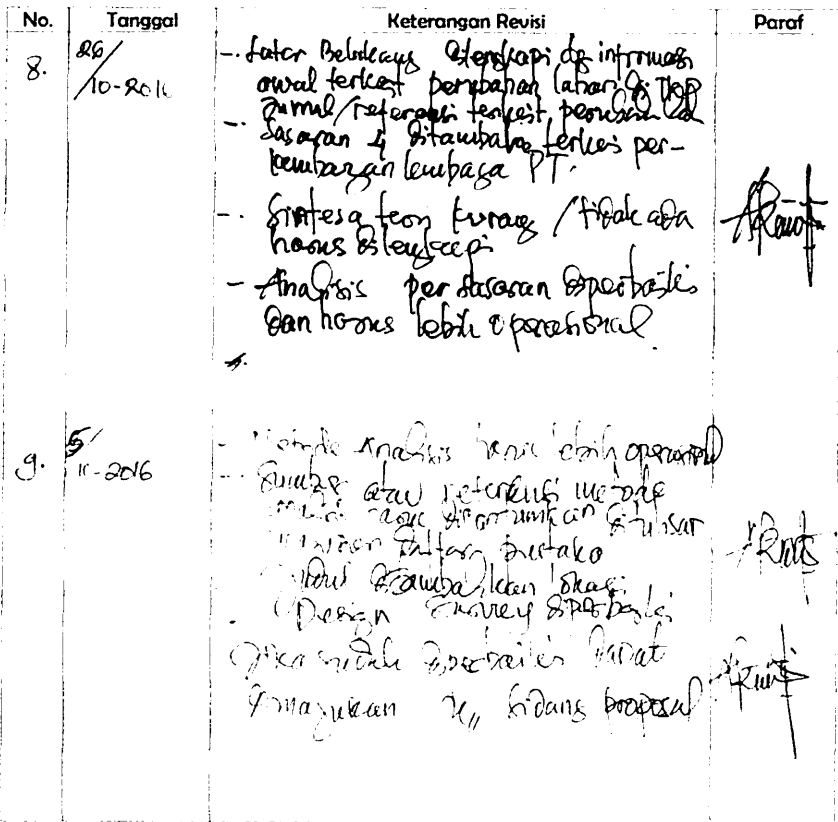 No. Tanggal Keterangan Revisi Paraf
8. 26/10-2016
- Latar Belakang dilengkapi dg informasi
awal terkait perubahan lahan di
Jurnal/referensi terkait
- Sasaran 4 ditambahkan terkait per-
kembangan lembaga PT.
- Sintesa teori kurang / tidak ada
harus dilengkapi
- Analisis per sasaran diperbaiki
dan harus lebih operasional.
9. 5/11-2016
- Metode Analisis harus lebih operasional
- Sumber atau referensi metode
harus dicantumkan
daftar pustaka
ditambahkan lokasi
Design Survey diperbaiki
Jika sudah diperbaiki dapat
dimajukan u/ sidang proposal